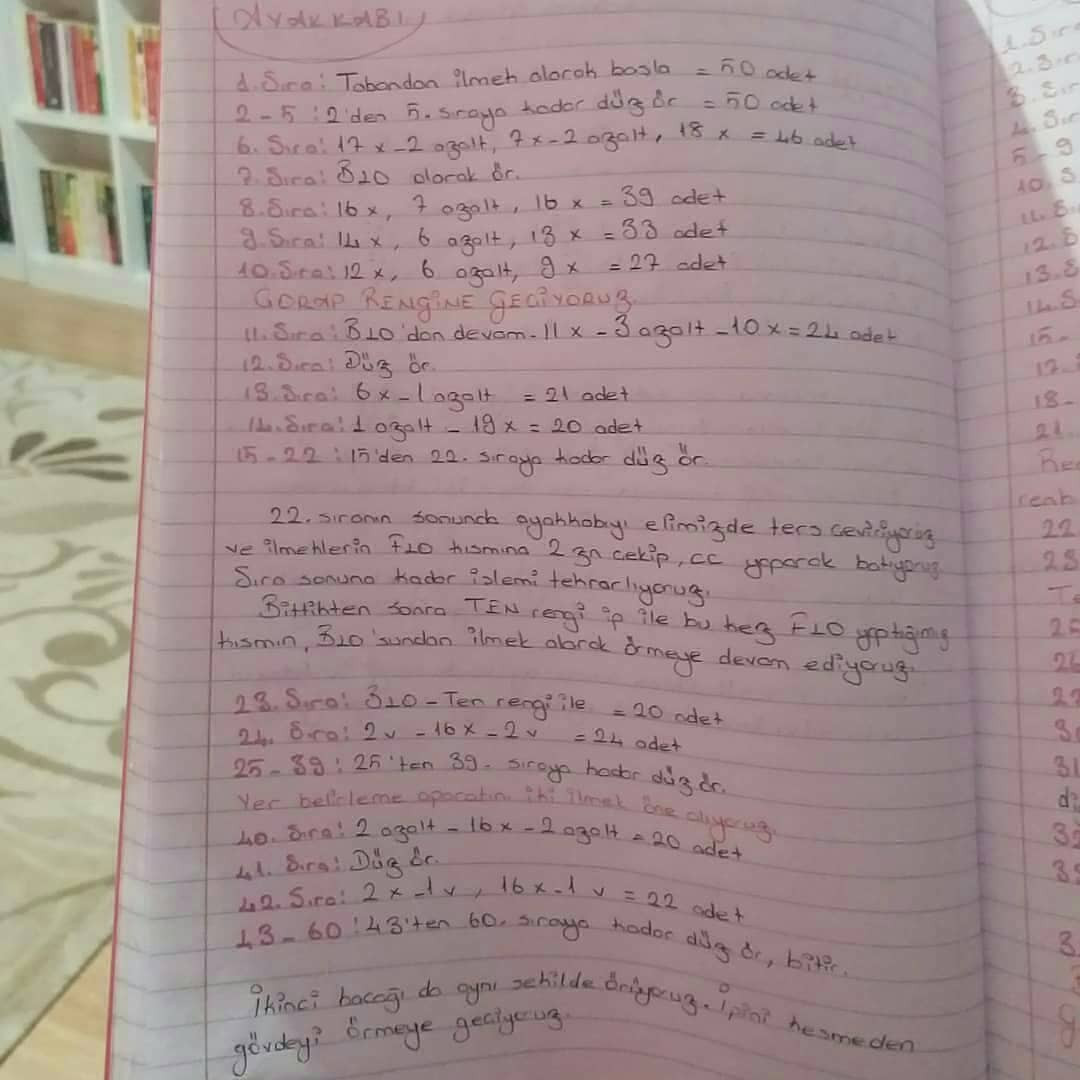 AYAKKABI
1. Sıra: Tabandan ilmek alarak başla = 50 adet
2-5 : 2'den 5. sıraya kadar düz ör = 50 adet
6. Sıra: 17x-2 azalt, 7x-2 azalt, 18x = 46 adet
7. Sıra: BLO olarak ör.
8. Sıra: 16x, 7 azalt, 16x = 39 adet
9. Sıra: 14x, 6 azalt, 13x = 33 adet
10. Sıra: 12x, 6 azalt, 9x = 27 adet
ÇORAP RENGİNE GEÇİYORUZ
11. Sıra: BLO'dan devam-11x-3 azalt-10x=24 adet
12. Sıra: Düz ör.
13. Sıra: 6x-1 azalt = 21 adet
14. Sıra: 1 azalt - 19x = 20 adet
15-22 : 15'den 22. sıraya kadar düz ör.
22. sıranın sonunda ayakkabıyı elimizde ters çeviriyoruz
ve ilmeklerin FLO kısmına 2 zn çekip, cc yaparak batıyoruz
Sıra sonuna kadar işlemi tekrarlıyoruz.
Bittikten sonra TEN rengi ip ile bu kez FLO yaptığımız
kısmın, BLO'sundan ilmek alarak örmeye devam ediyoruz.
23. Sıra: BLO-Ten rengi ile = 20 adet
24. Sıra: 2v - 16x - 2v = 24 adet
25-39 : 25'ten 39. sıraya kadar düz ör.
Yer belirleme aparatın iki ilmek öne alıyoruz.
40. Sıra: 2 azalt - 16x - 2 azalt = 20 adet
41. Sıra: Düz ör.
42. Sıra: 2x-1v, 16x-1v = 22 adet
43-60 : 43'ten 60. sıraya kadar düz ör, bitir.
İkinci bacağı da aynı şekilde örüyoruz. İpini kesmeden
gövdeyi örmeye geçiyoruz.
1. Sıra
2. Sır
3. Sır
4. Sır
5-9
10. S
11. S
12. S
13. S
14. S
15-
17.
18-
21.
Re
22
23
Te
25
26
27
31
33